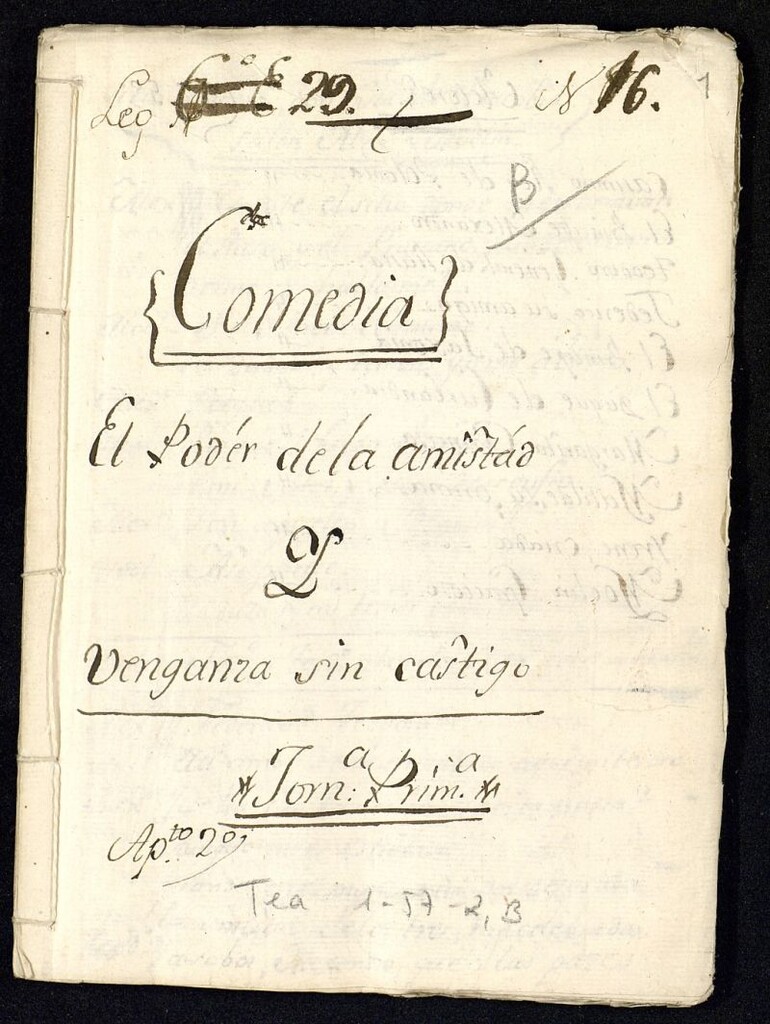 Leg 29. N 16.
1
B
Comedia
El Podér dela amistád
Y
Venganza sin castigo
Jorn.ª Prim.ª
Ap.to 2º
Tea 1-57-2, B